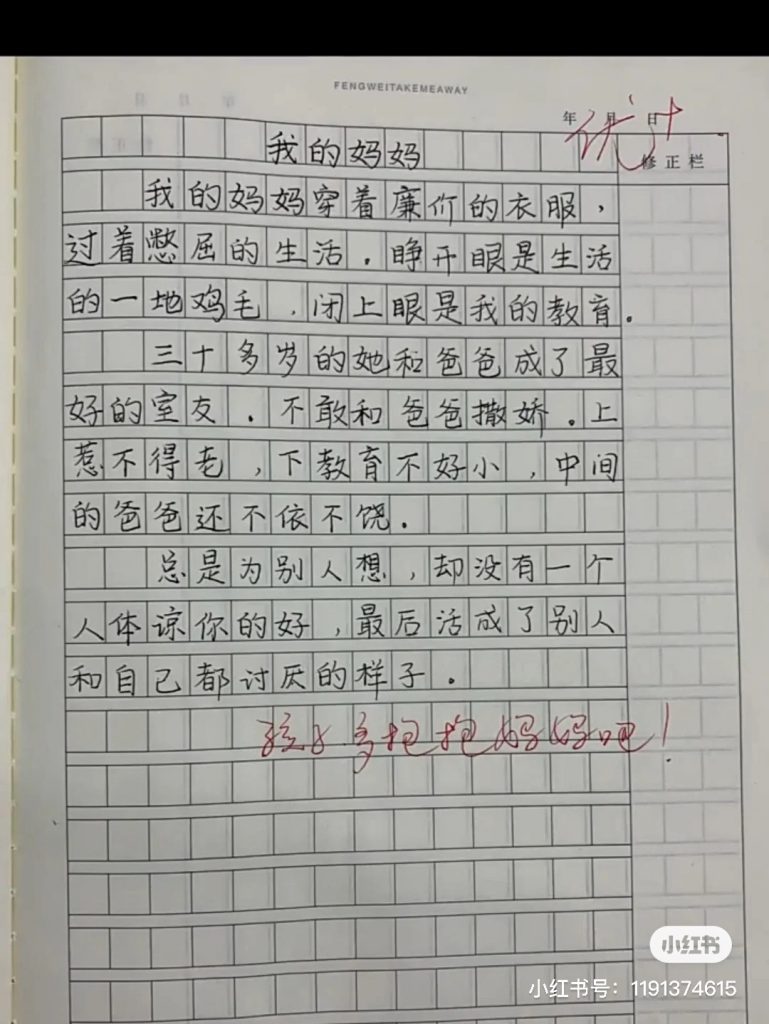 FENGWEITAKEMEAWAY
年 月 日
优+
修正栏
我的妈妈
我的妈妈穿着廉价的衣服，
过着憋屈的生活．睁开眼是生活
的一地鸡毛，闭上眼是我的教育．
三十多岁的她和爸爸成了最
好的室友．不敢和爸爸撒娇．上
惹不得老，下教育不好小，中间
的爸爸还不依不饶．
总是为别人想，却没有一个
人体谅你的好，最后活成了别人
和自己都讨厌的样子．
孩子多抱抱妈妈吧！
小红书
小红书号：1191374615